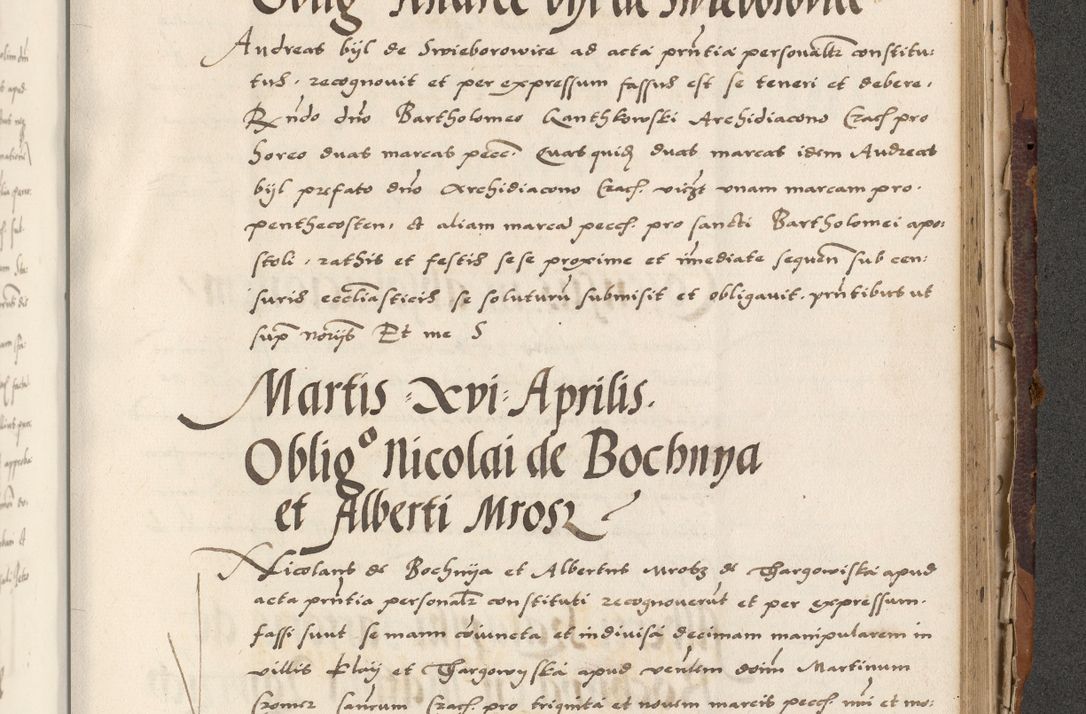 Oblig Andree byl de Swieborowice
Andreas bijl de Swieborowice ad acta prñtia personaltr constitu:
tus, recognovit et per expressum fassus est se teneri et debere,
Rñdo dño Bartholomeo Kanthkowski Archidiacono Crac pro
horeo duas marcas pecc. Quasquidz duas marcas idem Andreas
bijl prefato dño Archidiacono Crac. vidzt unam marcam pro.
penthecosten, et aliam marca pecc. pro sancti Bartholomei apo:
stoli, rathis et festis sese proxime et imediate sequen sub cen:
suris eccliasticis se soluturu submisit et obligavit, prñtibus ut
sup norijs Et me S
Martis xvi Aprilis.
Obligo Nicolai de Bochnya
et Alberti Mrosz
Nicolaus de Bochnija et Albertus Mrotz de Thargowiska apud
acta prñtia personaltr constituti recognoverut et per expressum.
fassi sunt se manu coiuncta et indivisa decimam manipularem in
villis Klay et Thargowyska apud venlem doim Martinum
Cromer cancum Crac. pro triginta et novem marcis pecc. mui et mo: